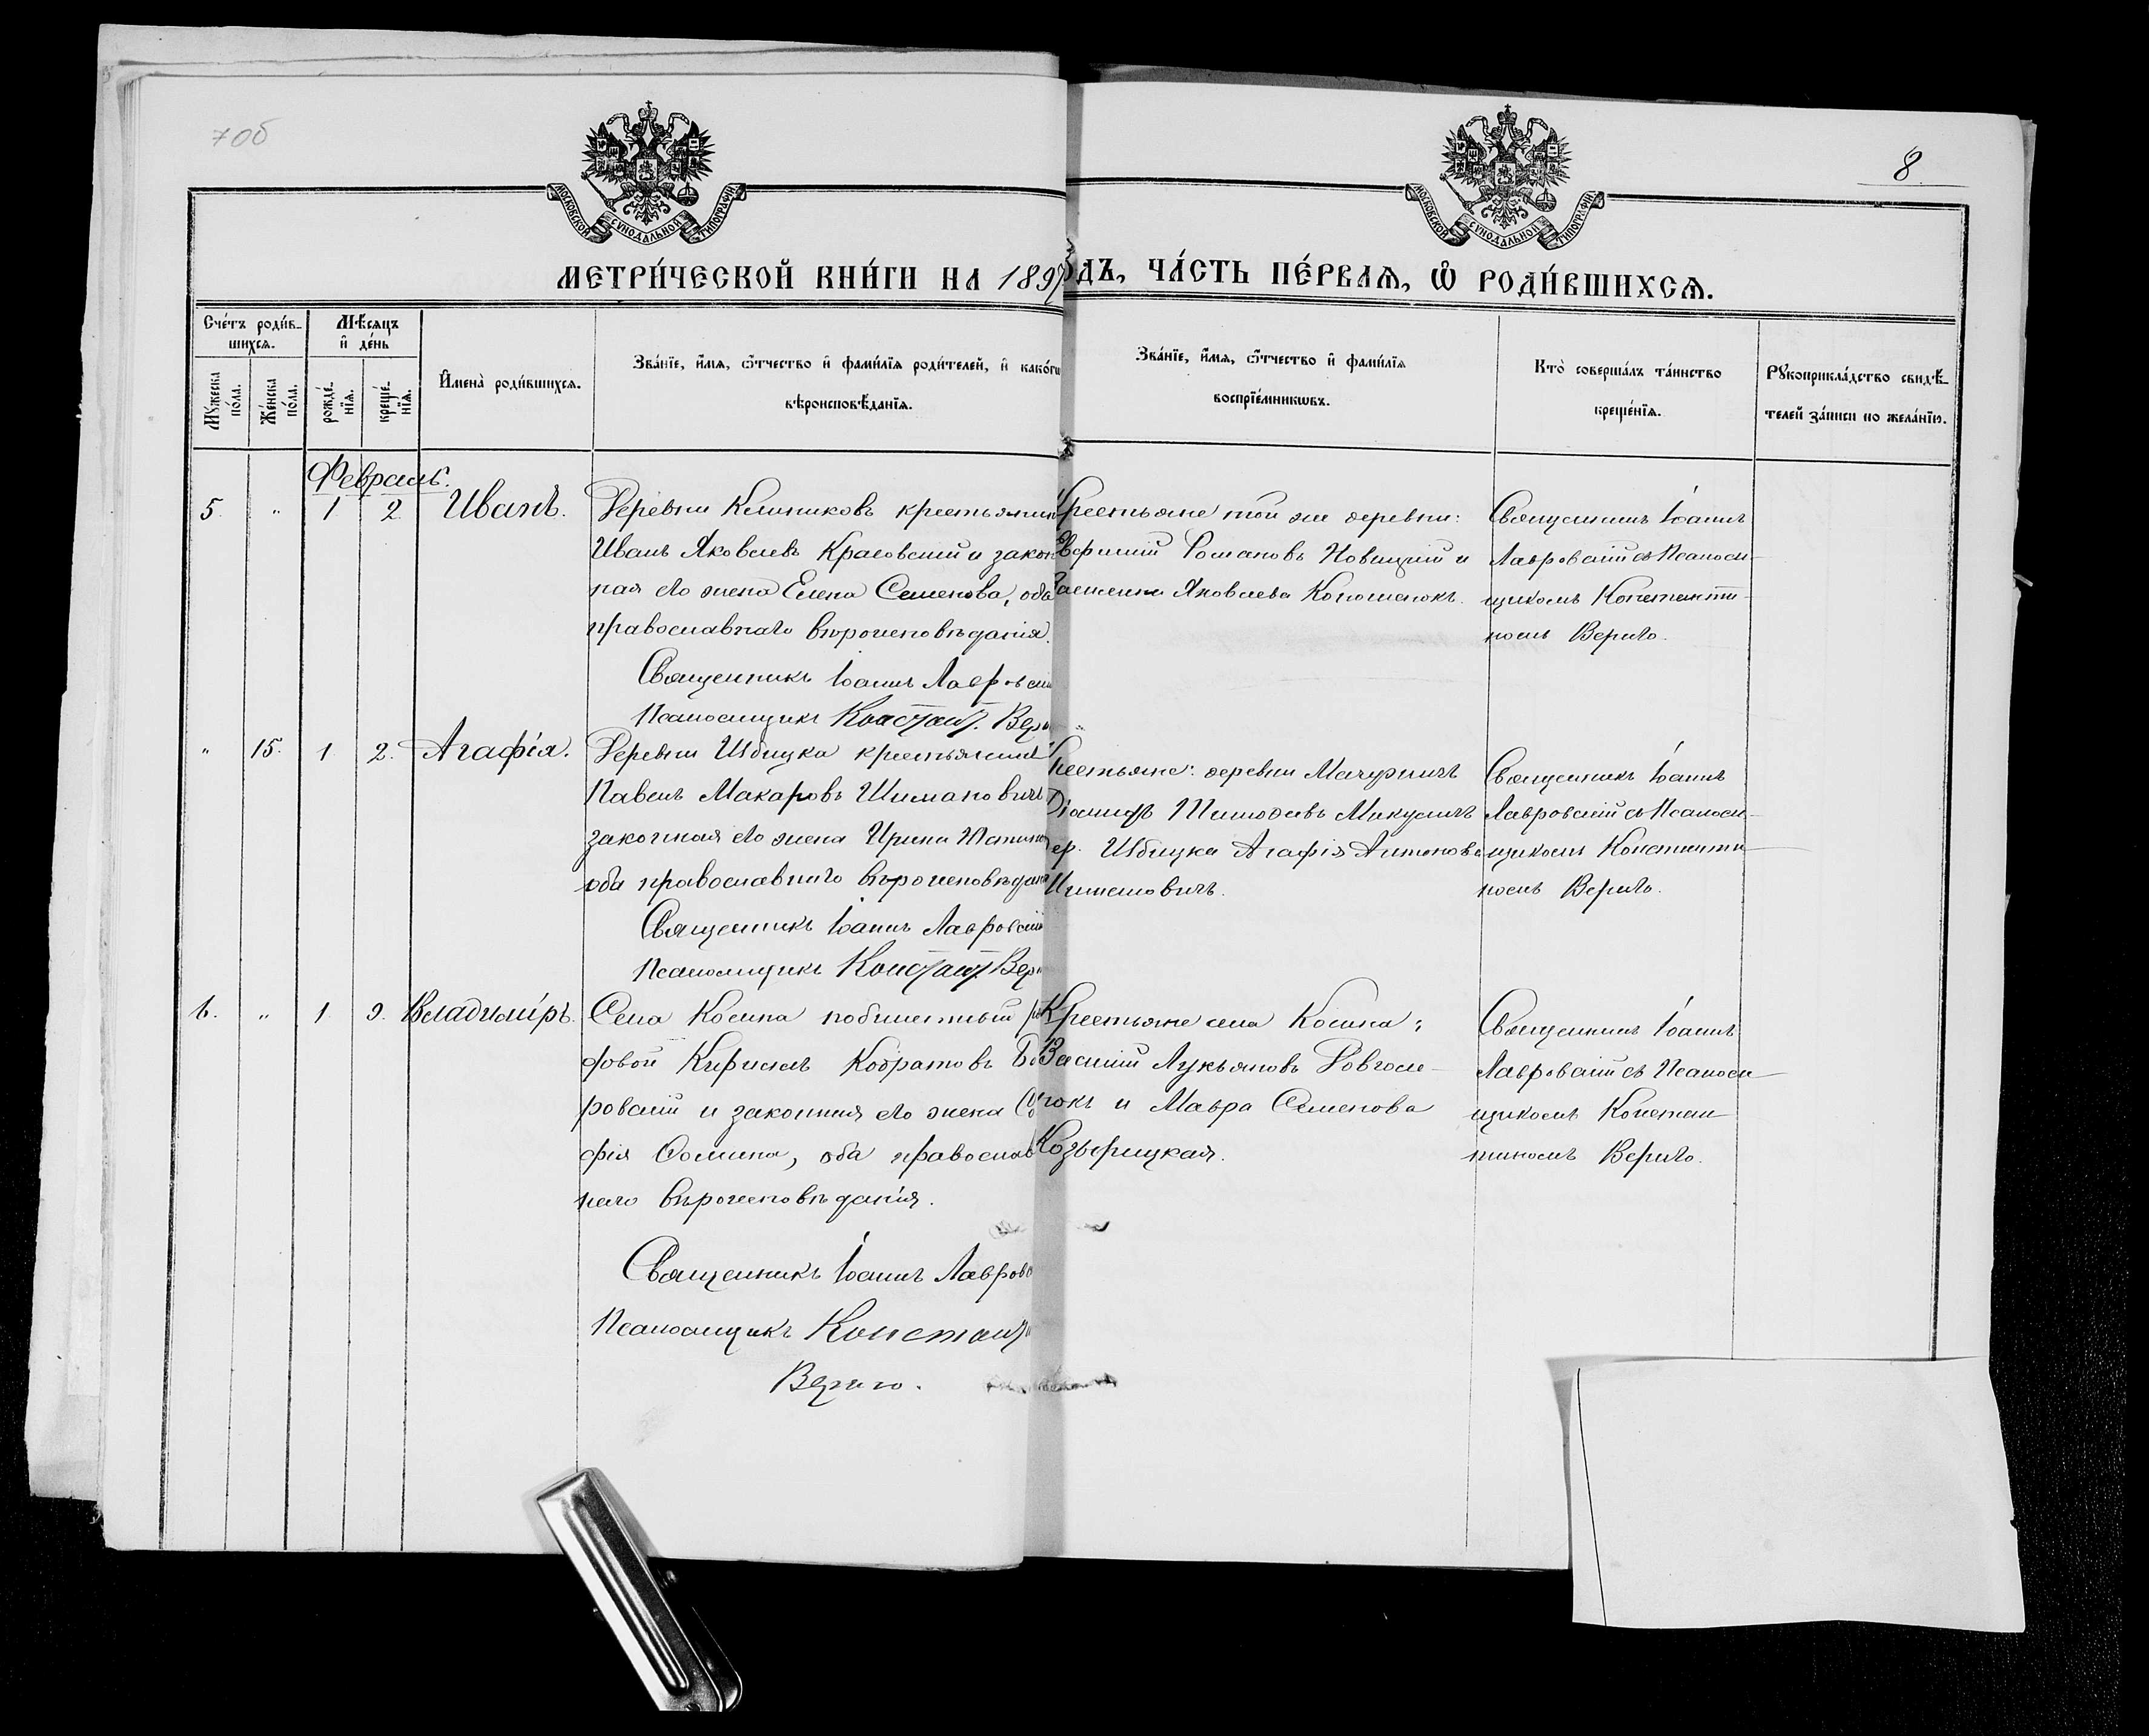 7 об
8
МОСКОВСКОЙ СѴНОДАЛЬНОЙ ТИПОГРАФІИ
МОСКОВСКОЙ СѴНОДАЛЬНОЙ ТИПОГРАФІИ
МЕТРИ́ЧЕСКОЙ КНИ́ГИ НА 1897
ДЪ, ЧА́СТЬ ПЕ́РВАѦ, Ѡ РОДИ́ВШИХСѦ.
Сче́тъ роди́в-
шихсѧ.
Мѣ́сѧцъ
и де́нь
Мꙋ́жеска
по́ла.
Же́нска
по́ла.
рожде́-
нїѧ.
креще́-
нїѧ.
Имена̀ роди́вшихсѧ.
Зва́нїе, и́мѧ, ѻ́тчество и фами́лїѧ роди́телей, и како́гѡ
вѣроисповѣ́данїѧ.
Зва́нїе, и́мѧ, ѻ́тчество и фами́лїѧ
воспрїе́мникѡвъ.
Кто̀ соверша́лъ та́инство
креще́нїѧ.
Рꙋкоприкла́дство свидѣ́-
телей за́писи по жела́нїю.
Февраль.
5. " 1 2 Иванъ.
Деревни крестьянин
Иванъ Яковлевъ Красовскій и закон
ная его жена Елена Семенова, оба
православнаго вѣроисповѣданія.
Священникъ Іоаннъ Лавровскій
Псаломщикъ Констант. Вери
Крестьяне той же деревни:
Романовъ Новицкій и
Яковлева
Священникъ Іоаннъ
Лавровскій съ Псаломъ-
щикомъ Константи-
номъ Вериго.
" 15. 1 2. Агафія.
Деревни Избицка крестьянинъ
Павелъ Макаровъ Шимановичъ
законная его жена Ирина
оба православнаго вѣроисповѣдан
Священникъ Іоаннъ Лавровскій
Псаломщикъ Констант. Вери
Крестьяне: деревни
Тимофеевъ Микуличъ
дер. Избицка Агафія Антонова
Шимановичъ.
Священникъ Іоаннъ
Лавровскій съ Псаломъ-
щикомъ Константи-
номъ Вериго.
6. " 1 2. Владиміръ.
Села Косина
довой Кириллъ Кодратовъ
ровскій и законная его жена Со
фія Фомина, оба православ
наго вѣроисповѣданія.
Священникъ Іоаннъ Лавровс
Псаломщикъ Констант
Вериго.
Крестьяне села Косина:
Василій Лукьяновъ
и Мавра Семенова
Козырицкая.
Священникъ Іоаннъ
Лавровскій съ Псаломъ-
щикомъ Констан
тиномъ Вериго.